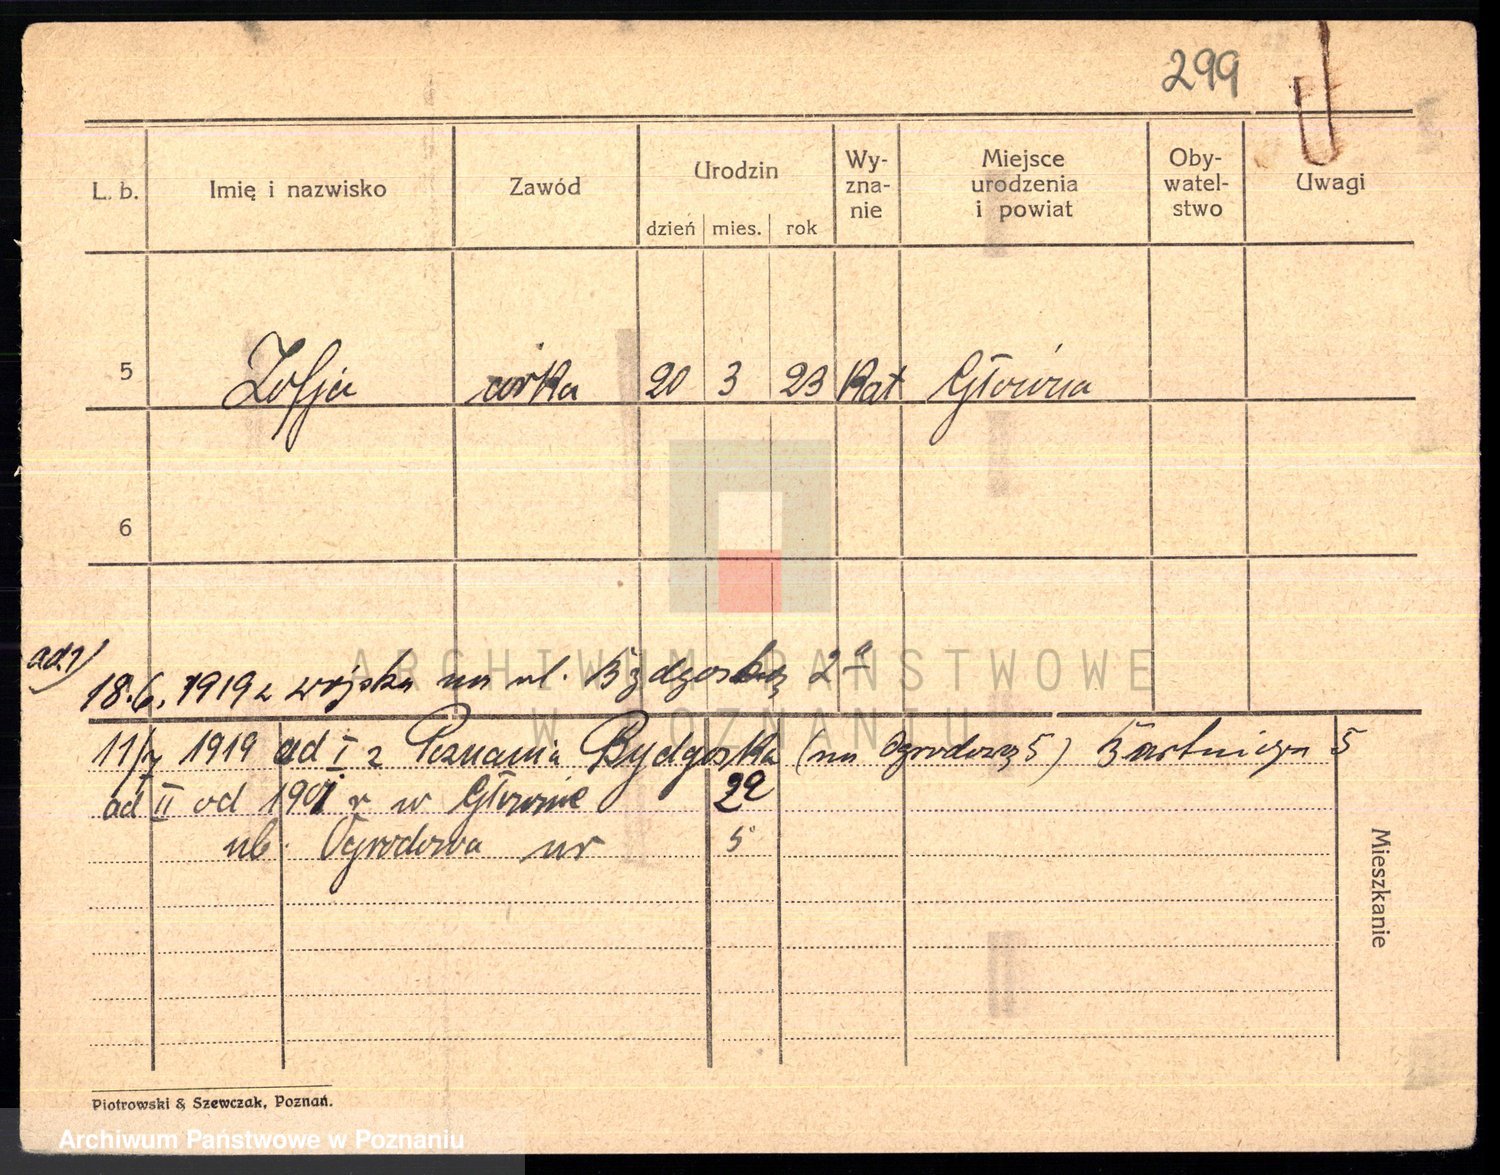 299
L. b. Imię i nazwisko Zawód Urodzin dzień mies. rok Wy-zna-nie Miejsce urodzenia i powiat Oby-watel-stwo Uwagi
5 Zofja córka 20 3 23 Kat Główna
6
ad 1)
18.6.1919 z wojska na ul. Bydgoską 2a
11/7 1919 ad I z Poznania Bydgoska (na Ogrodową 5) 5
ad II od 1901 r w Głównie 22
ul. Ogrodowa nr 5
Mieszkanie
Piotrowski & Szewczak, Poznań.
ARCHIWUM PAŃSTWOWE
W POZNANIU
Archiwum Państwowe w Poznaniu